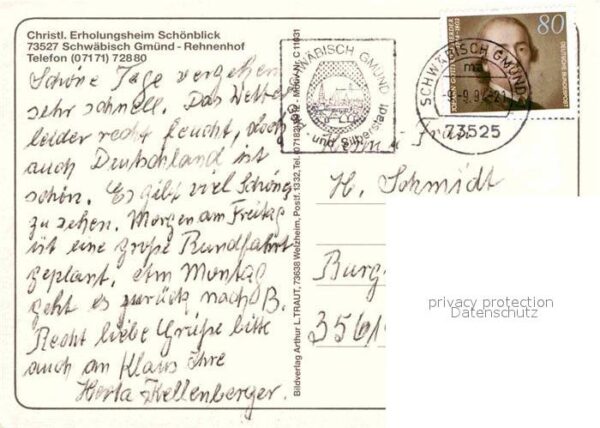 Christl. Erholungsheim Schönblick
73527 Schwäbisch Gmünd - Rehnenhof
Telefon (07171) 72880
Schöne Tage vergehen
sehr schnell. Das Wetter
leider recht feucht, doch
auch Deutschland ist
schön. Es gibt viel Schönes
zu sehen. Morgen am Freitag
ist eine große Rundfahrt
geplant. Am Montag
geht es zurück nach B.
Recht liebe Grüße bitte
auch an Klaus Ihre
Herta Kellenberger.
Bildverlag Arthur L. TRAUT, 73638 Welzheim, Postf. 1332, Tel. (07182) Archiv-Nr. C 11931
SCHWÄBISCH GMÜND
- und Silberstadt
SCHWÄBISCH GMÜND
73525
80
JOHANN GOTTFRIED HERDER
DEUTSCHE BUNDESPOST
H. Schmidt
Burg
privacy protection
Datenschutz